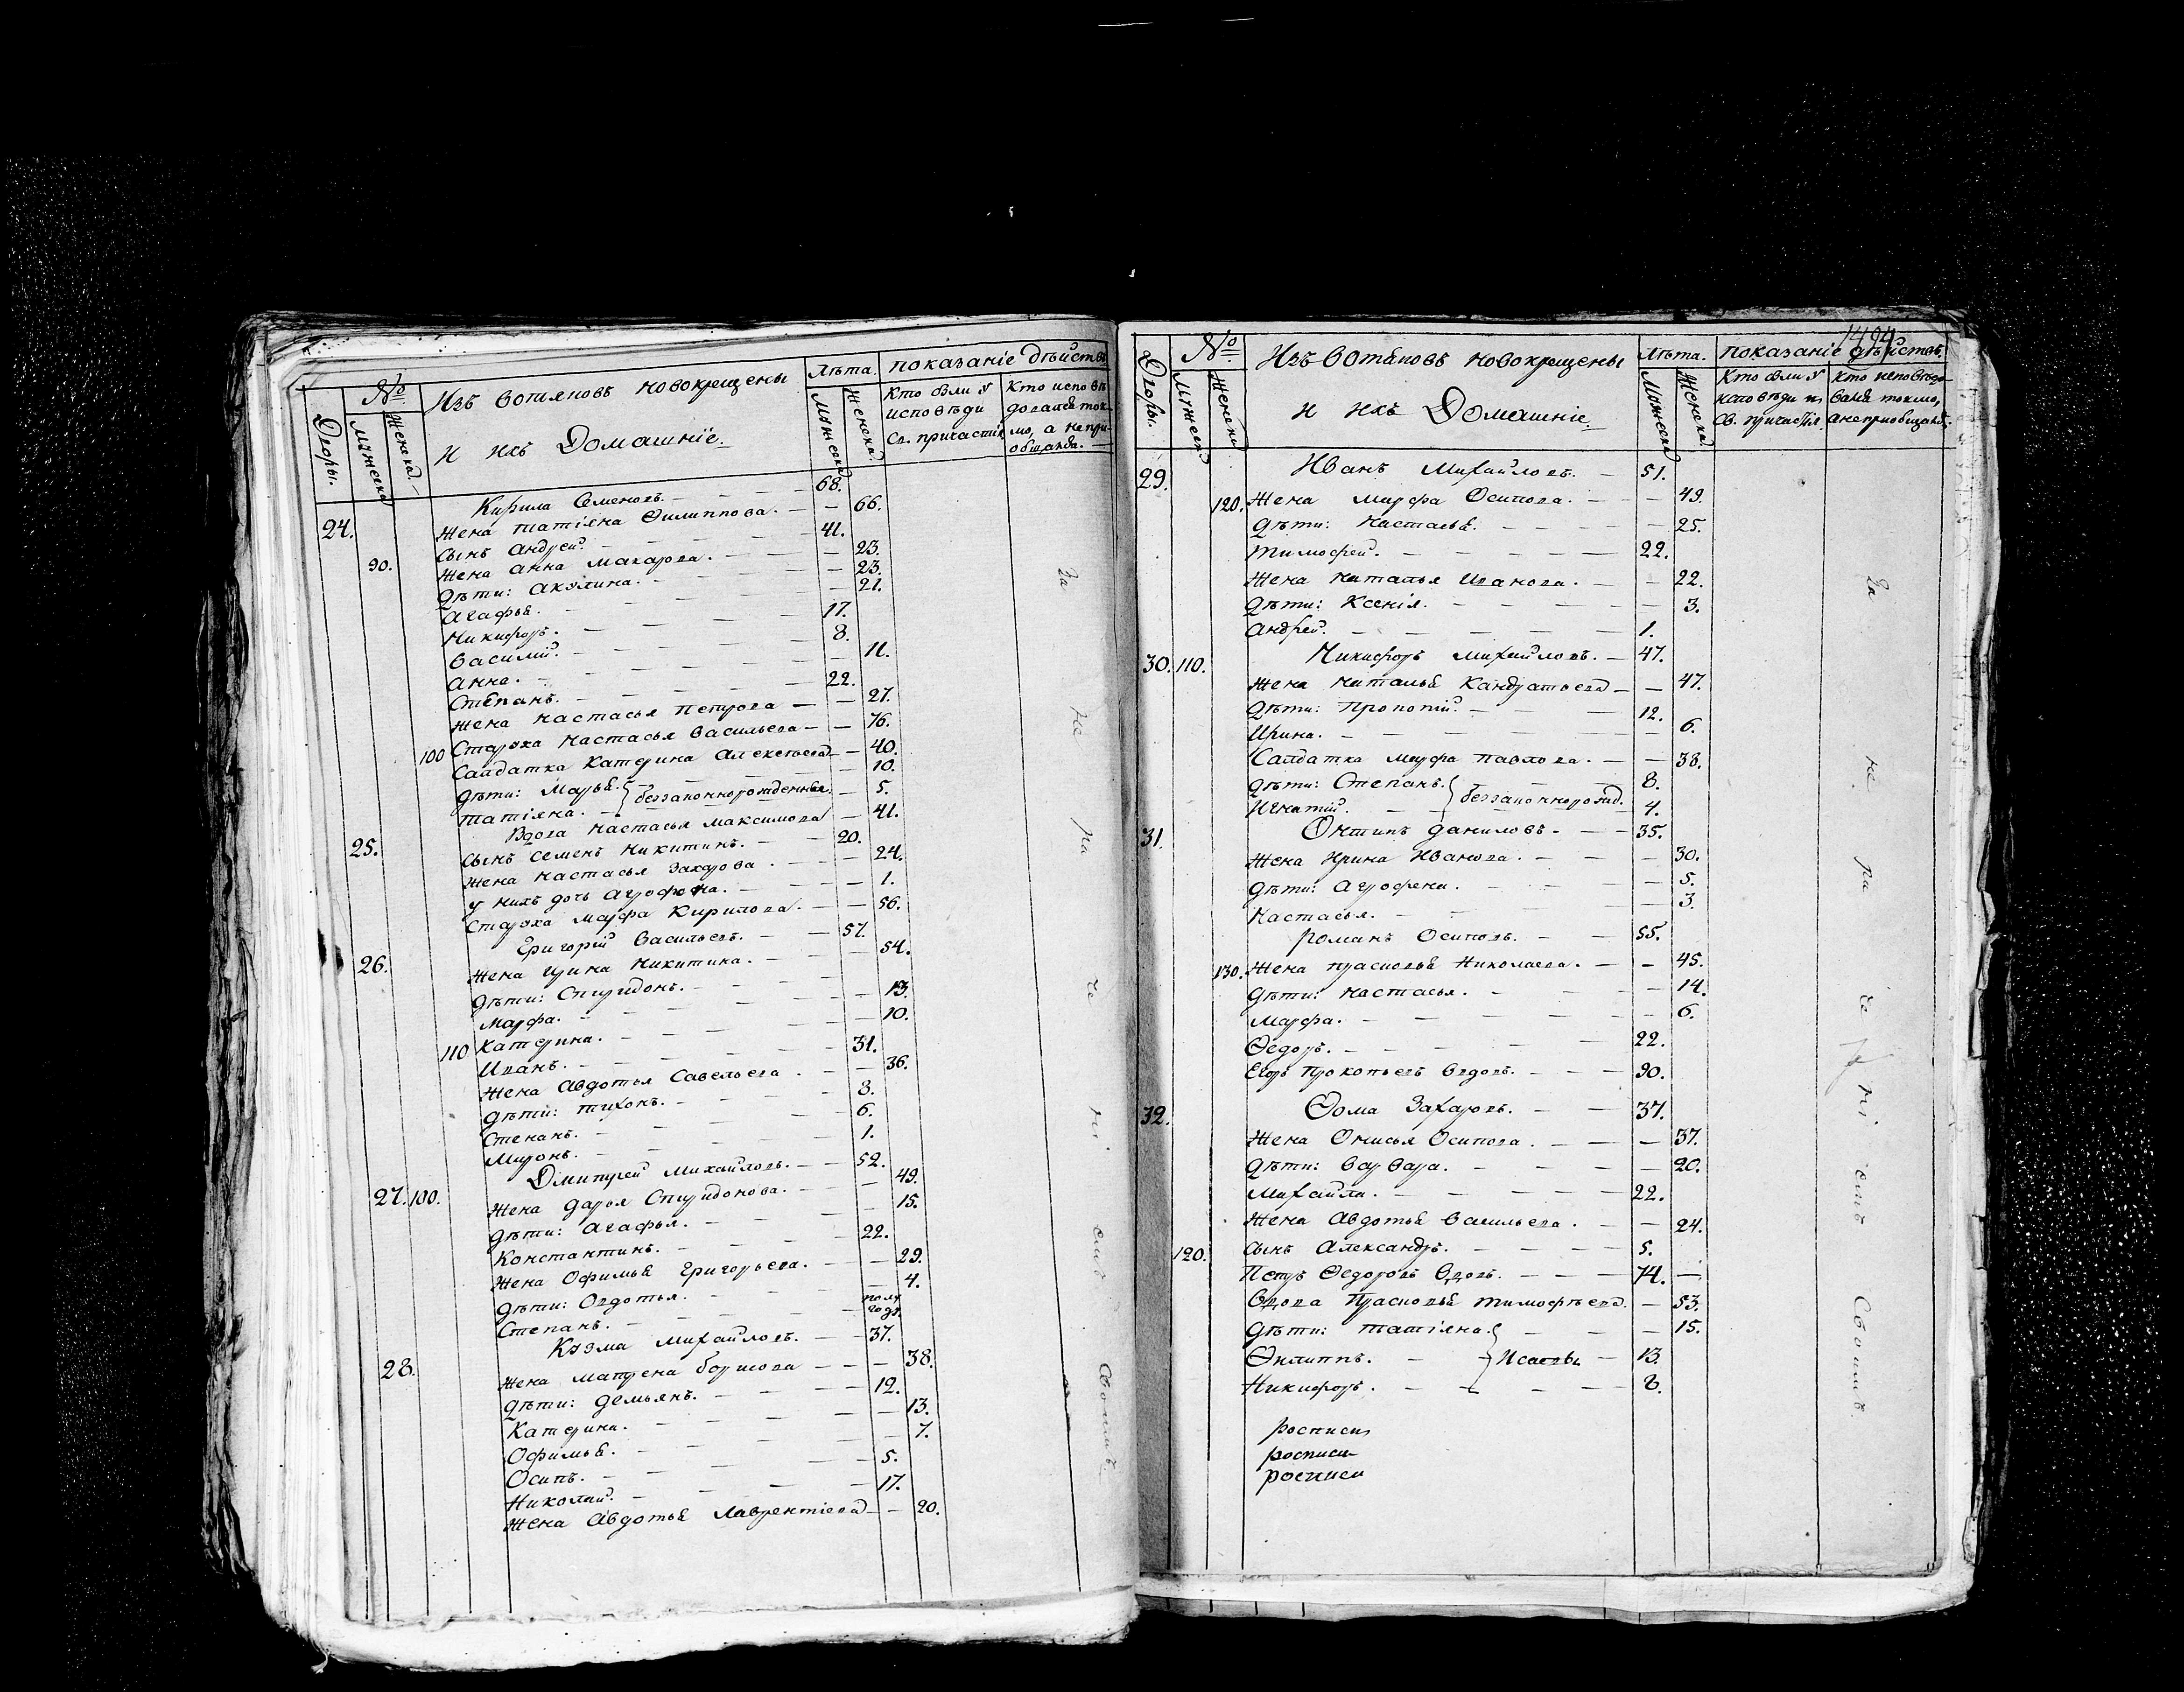 № Изъ вотяковъ новокрещены Лѣта. показаніе дѣйствъ
Дворы. Мужеска Женска. и ихъ Домашніе. Мужеска Женска. Кто были у исповѣди Св. причастія Кто исповѣдовался токмо, а не пріобщался.
24. Кирила Семеновъ. — 68.
Жена Татіяна Филиппова. — 66.
Сынъ Андрей. — 41.
90. Жена Анна Макарова. — 23.
Дѣти: Акулина. — 23.
Агафья. — 21.
Никифоръ. — 17.
Василій. — 8.
Анна. — 11.
Степанъ. — 22.
Жена Настасья Петрова — 27.
Старуха Настасья Васильева — 76.
100 Салдатка Катерина Алексѣева — 40.
Дѣти: Марья. — 10.
Татіяна. } беззаконнорожденныя. — 5.
25. Вдова Настасья Максимова — 41.
Сынъ Семенъ Никитинъ. — 20.
Жена Настасья Захарова. — 24.
у нихъ дочь Агрофена. — 1.
Старуха Марфа Кирилова. — 56.
26. Григорій Васильевъ. — 57.
Жена Ирина Никитина. — 54.
Дѣти: Спиридонъ. —
Марфа. — 13.
110 Катерина. — 10.
Иванъ. — 31.
Жена Авдотья Савельева. — 36.
Дѣти: Тихонъ. — 8.
Степанъ. — 6.
Миронъ. — 1.
27. 100. Дмитрей Михайловъ. — 52.
Жена Дарья Спиридонова. — 49.
Дѣти: Агафья. — 15.
Константинъ. — 22.
Жена Офимья Григорьева. — 29.
Дѣти: Овдотья. — 4.
Степанъ. — полугодъ.
28. Кузма Михайловъ. — 37.
Жена Матрена Борисова — 38.
Дѣти: Демьянъ. — 12.
Катерина. — 13.
Офимья. — 7.
Осипъ. — 5.
Николай. — 17.
Жена Авдотья Лаврентіева — 20.
За не ра че ні емъ Своимъ
1494
№ Изъ Вотяковъ новокрещены Лѣта. показаніе дѣйствъ.
Дворы. Мужеска Женска и ихъ Домашніе. Мужеска Женска. Кто были у исповѣди и Св. причастія. Кто исповѣдовался токмо, а не пріобщался.
29. Иванъ Михайловъ. — 51.
120. Жена Марфа Осипова. — 49.
Дѣти: Настасья. — 25.
Тимофей. — 22.
Жена Наталья Иванова. — 22.
Дѣти: Ксенія. — 3.
Андрей. — 1.
30. 110. Никифоръ Михайловъ. — 47.
Жена Наталья Кандратьева — 47.
Дѣти: Прокопій. — 12.
Ирина. — 6.
Салдатка Марфа Павлова. — 38.
Дѣти: Степанъ. — 8.
Игнатій. } беззаконнорожд. 4.
31. Онтипъ Даниловъ. — 35.
Жена Ирина Иванова. — 30.
Дѣти: Агрофена. — 5.
Настасья. — 3.
Романъ Осиповъ. — 55.
130. Жена Прасковья Николаева. — 45.
Дѣти: Настасья. — 14.
Марфа. — 6.
Федоръ. — 22.
Егоръ Прокопьевъ Вдовъ. — 90.
32. Фома Захаровъ. — 37.
Жена Онисья Осипова. — 37.
Дѣти: Варвара. — 20.
Михайла. — 22.
Жена Авдотья Васильева. — 24.
120. Сынъ Александръ. — 5.
Петръ Федоровъ Вдовъ. — 74.
Вдова Прасковья Тимофѣева. — 53.
Дѣти: Татіяна. — 15.
Филиппъ. } Исаевы — 13.
Никифоръ. — 8.
росписи
росписи
росписи
За не ра че ні емъ Своимъ.